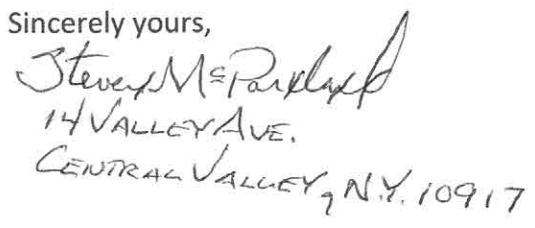 Sincerely yours,
Steven McPartland
14 VALLEY AVE.
CENTRAL VALLEY, N.Y. 10917